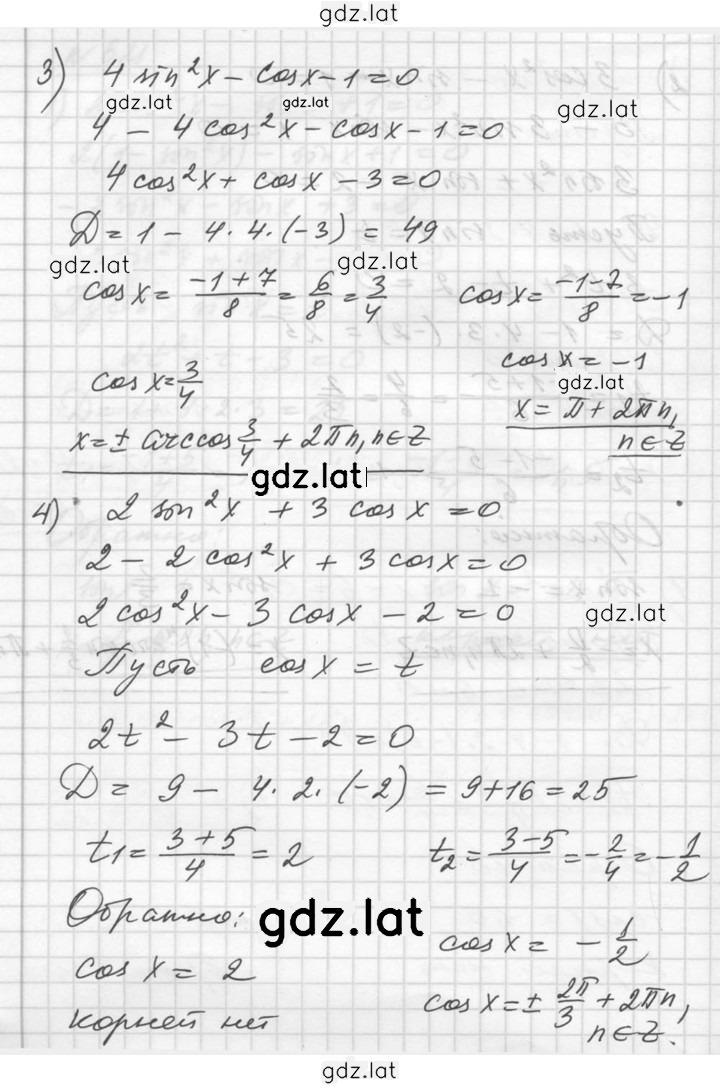 gdz.lat
3) 4 sin²x – cosx – 1 = 0
gdz.lat gdz.lat gdz.lat
4 – 4 cos²x – cosx – 1 = 0
4 cos²x + cosx – 3 = 0
D = 1 – 4·4·(-3) = 49
gdz.lat gdz.lat
cosx = (-1+7)/8 = 6/8 = 3/4 cosx = (-1-7)/8 = -1
cosx = 3/4 cosx = -1
gdz.lat
x = ± arccos 3/4 + 2πn, n∈Z x = π + 2πn,
n∈Z
gdz.lat
4) 2 sin²x + 3 cosx = 0
2 – 2 cos²x + 3 cosx = 0
2 cos²x – 3 cosx – 2 = 0 gdz.lat
Пусть cosx = t
2t² – 3t – 2 = 0
D = 9 – 4·2·(-2) = 9+16 = 25
t1 = (3+5)/4 = 2 t2 = (3-5)/4 = -2/4 = -1/2
Обратно: gdz.lat
cosx = 2 cosx = -1/2
корней нет cosx = ± 2π/3 + 2πn,
n∈Z.
gdz.lat